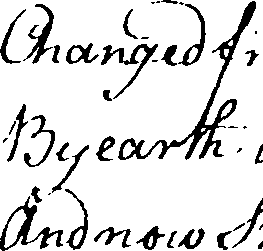 Changed
By earth
And now